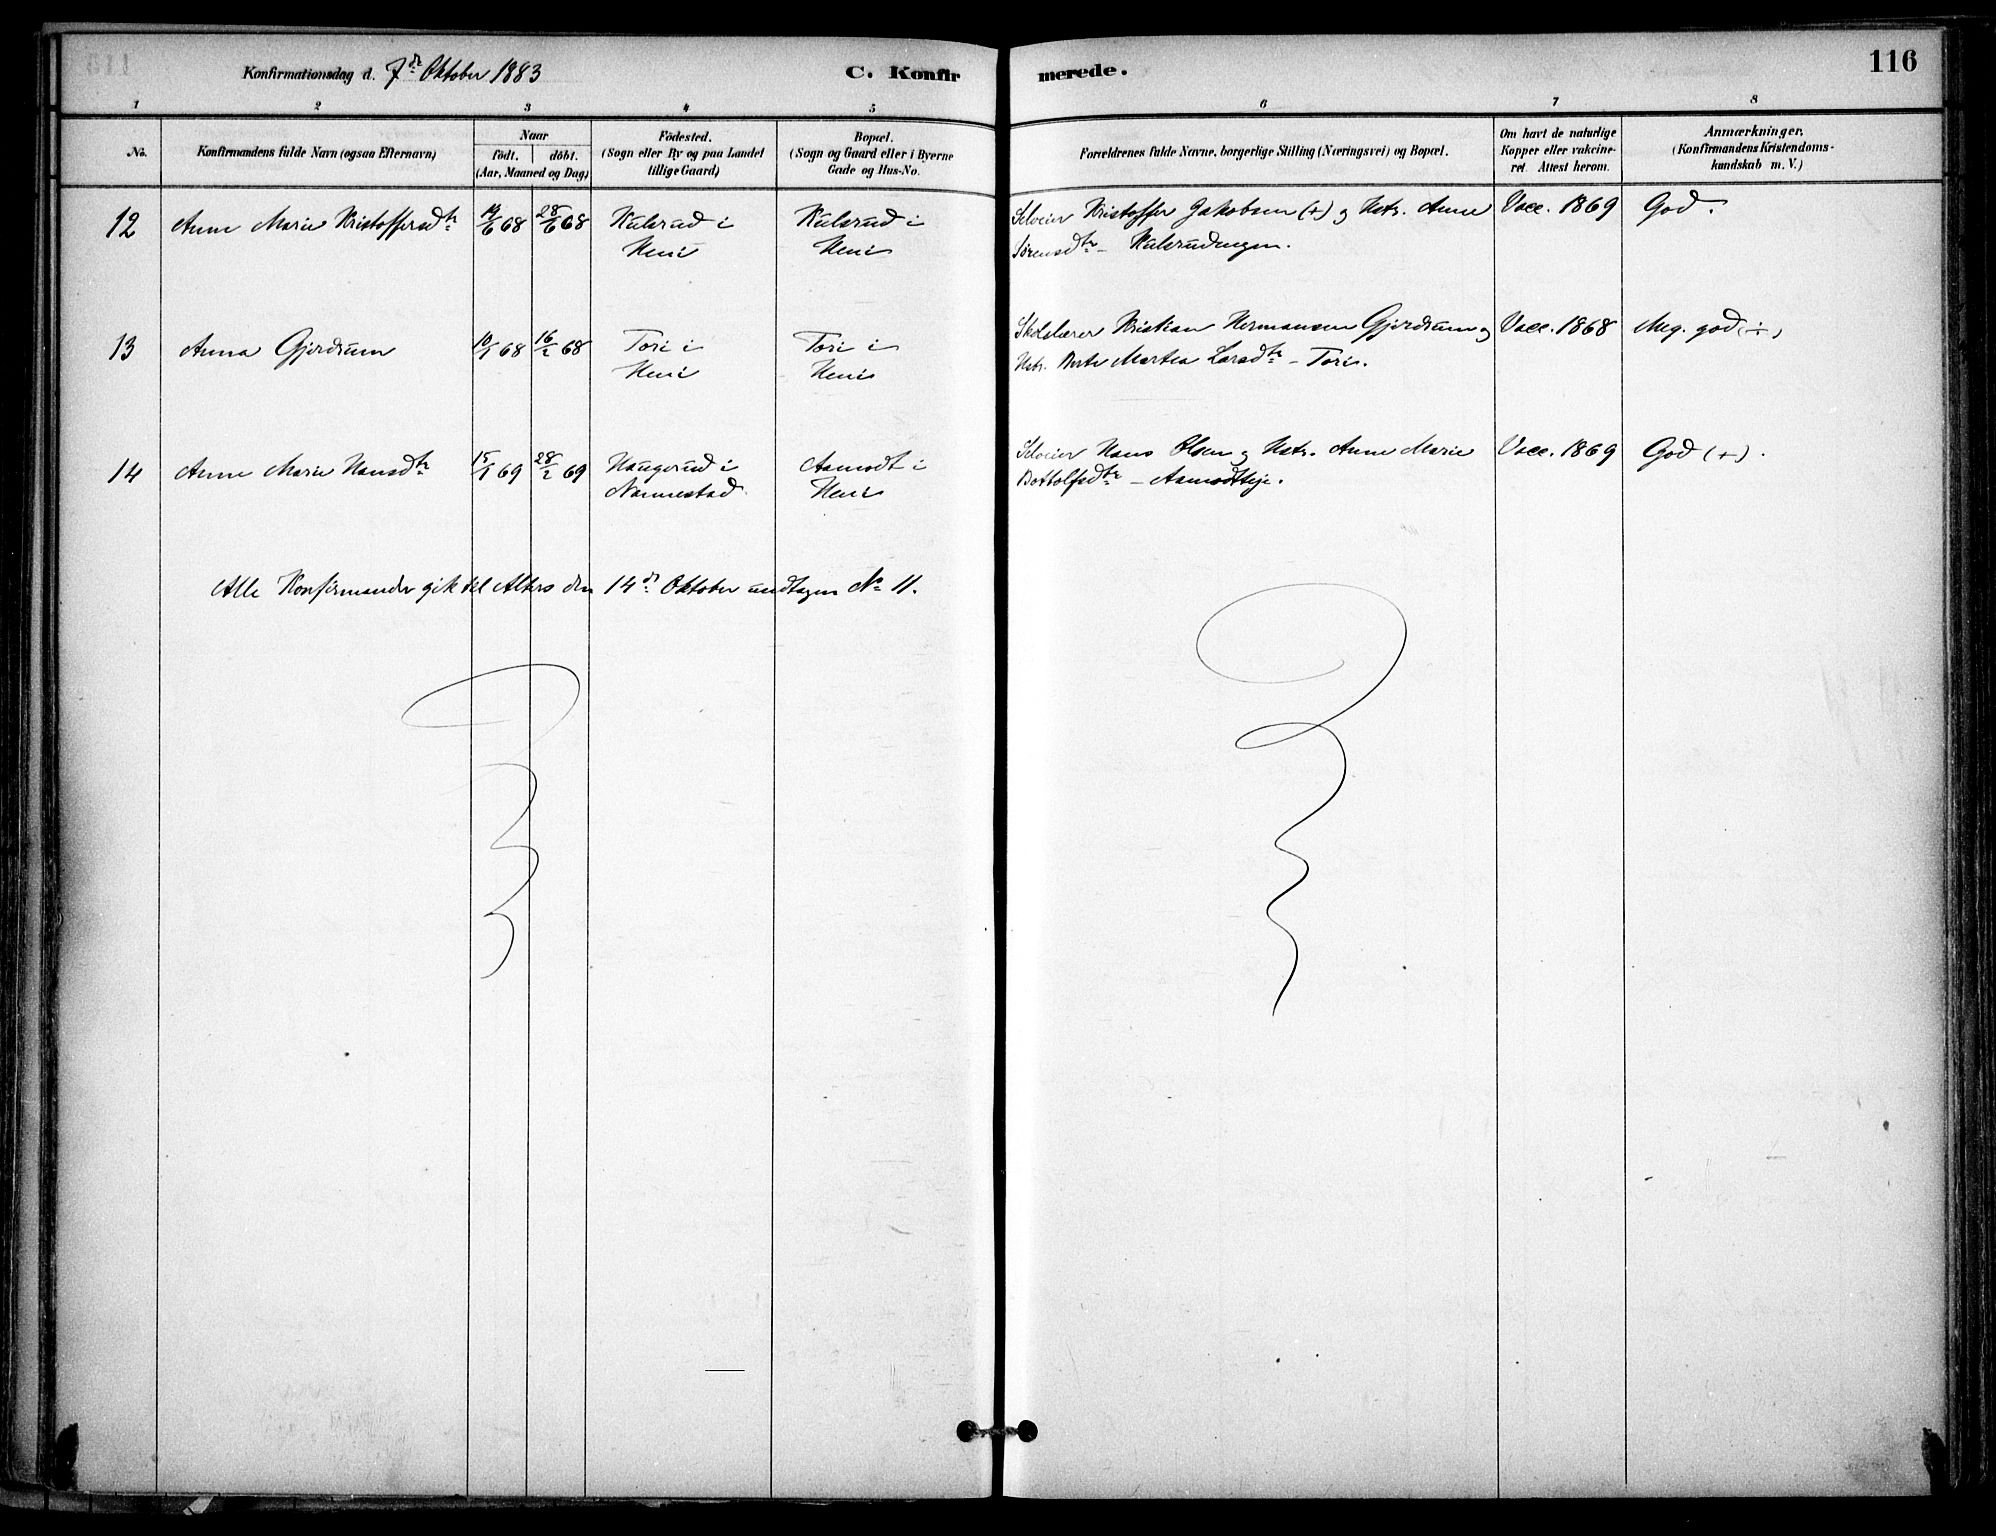 Konfirmationsdag d. 7de Oktober 1883
C. Konfirmerede.
116
1 2 3 4 5 6 7 8
No.
Konfirmandens fulde Navn (ogsaa Efternavn)
Naar
födt. döbt.
(Aar, Maaned og Dag)
Födested.
(Sogn eller By og paa Landet
tillige Gaard)
Bopæl.
(Sogn og Gaard eller i Byerne
Gade og Hus-No.
Forældrenes fulde Navne, borgerlige Stilling (Næringsvei) og Bopæl.
Om havt de naturlige
Kopper eller vakcine-
ret. Attest herom.
Anmærkninger.
(Konfirmandens Kristendoms-
kundskab m. V.)
12 Anne Marie Kristoffersdtr 19/6 68 28/6 68 Kulsrud i Kulsrud i Selveier Kristoffer Jakobsen (+) og Hstr. Anne Vacc. 1869 God.
Heni Heni Sørensdtr – Kulsrudengen.
13 Anna Gjerdrum 10/1 68 16/2 68 Tori i Tori i Skolelærer Kristian Hermansen Gjerdrum og Vacc. 1868 Meg. god (÷)
Heni Heni Hstr. Berte Martea Larsdtr – Tori.
14 Anne Marie Hansdtr 15/1 69 28/2 69 Haugerud i Aamodt i Selveier Hans Olsen og Hstr. Anne Marie Vacc. 1869 God (+).
Nannestad Heni Bottolfsdtr – Aamodteje.
Alle Konfirmander gik til Alters den 14de Oktober undtagen No 11.